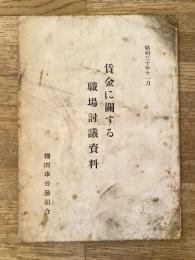 昭和三十年十一月
賃金に関する
職場討議資料
機関車労働組合